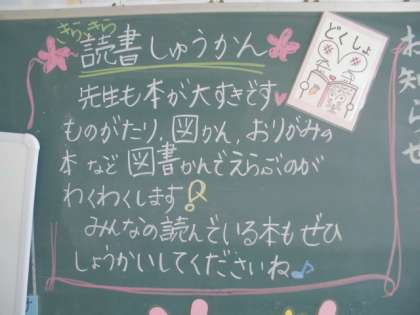 きらきら
読書しゅうかん
先生も本が大すきです
ものがたり、図かん、おりがみの
本など図書かんでえらぶのが
わくわくします♀
みんなの読んでいる本もぜひ
しょうかいしてくださいね♪
どくしょ
お知らせ